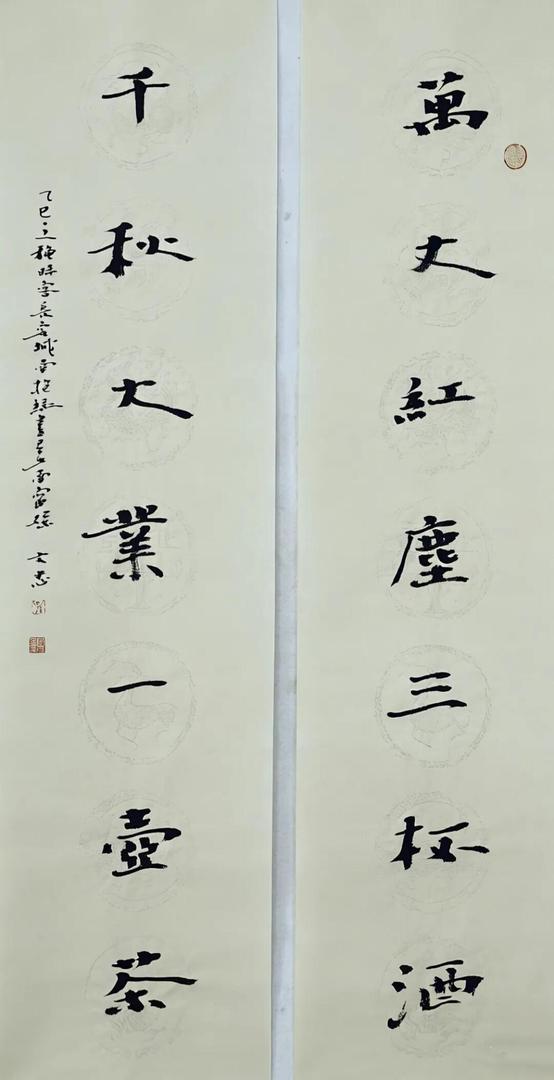 萬丈紅塵三杯酒
千秋大業一壺茶
乙巳之秋時客長安城南於綠書屋南窗 文忠